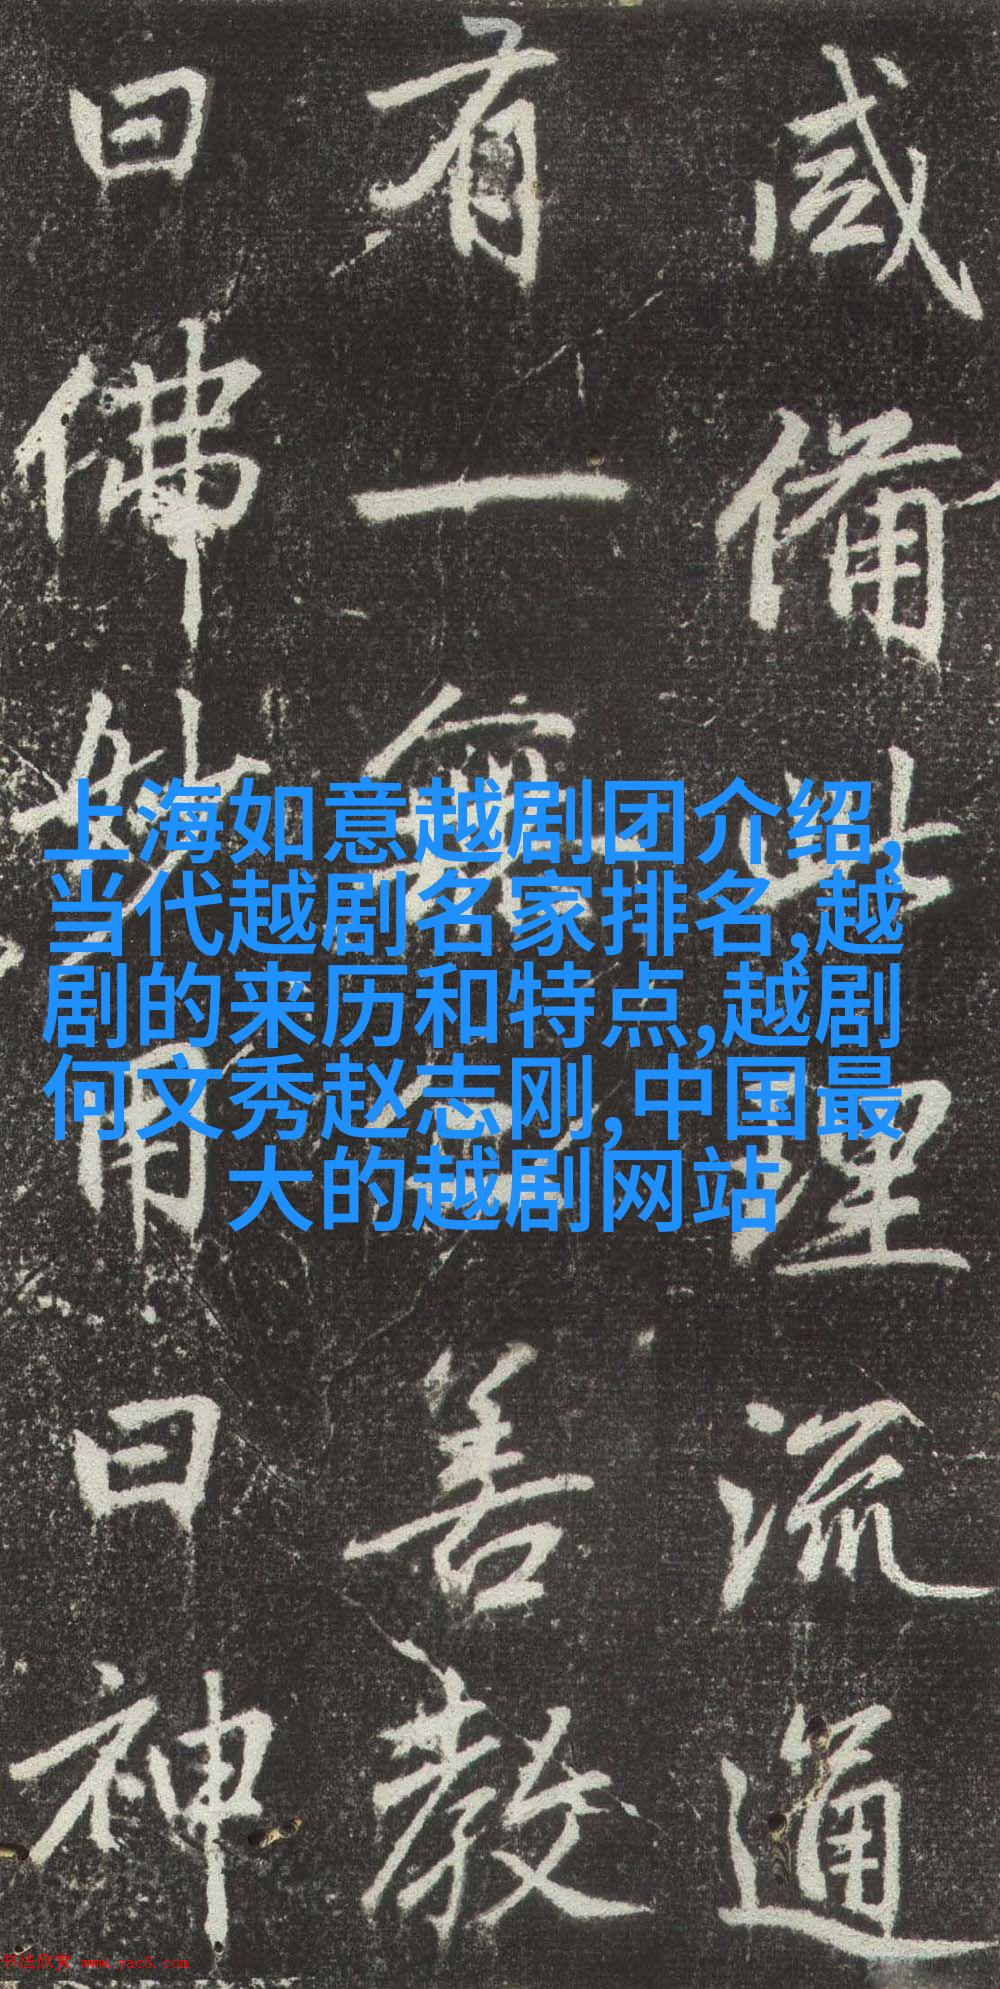 咸備此理流通
有一無二善教
曰佛妙用曰神
上海如意越剧团介绍,
当代越剧名家排名,越
剧的来历和特点,越剧
何文秀赵志刚,中国最
大的越剧网站
书法欣赏 www.yac8.com